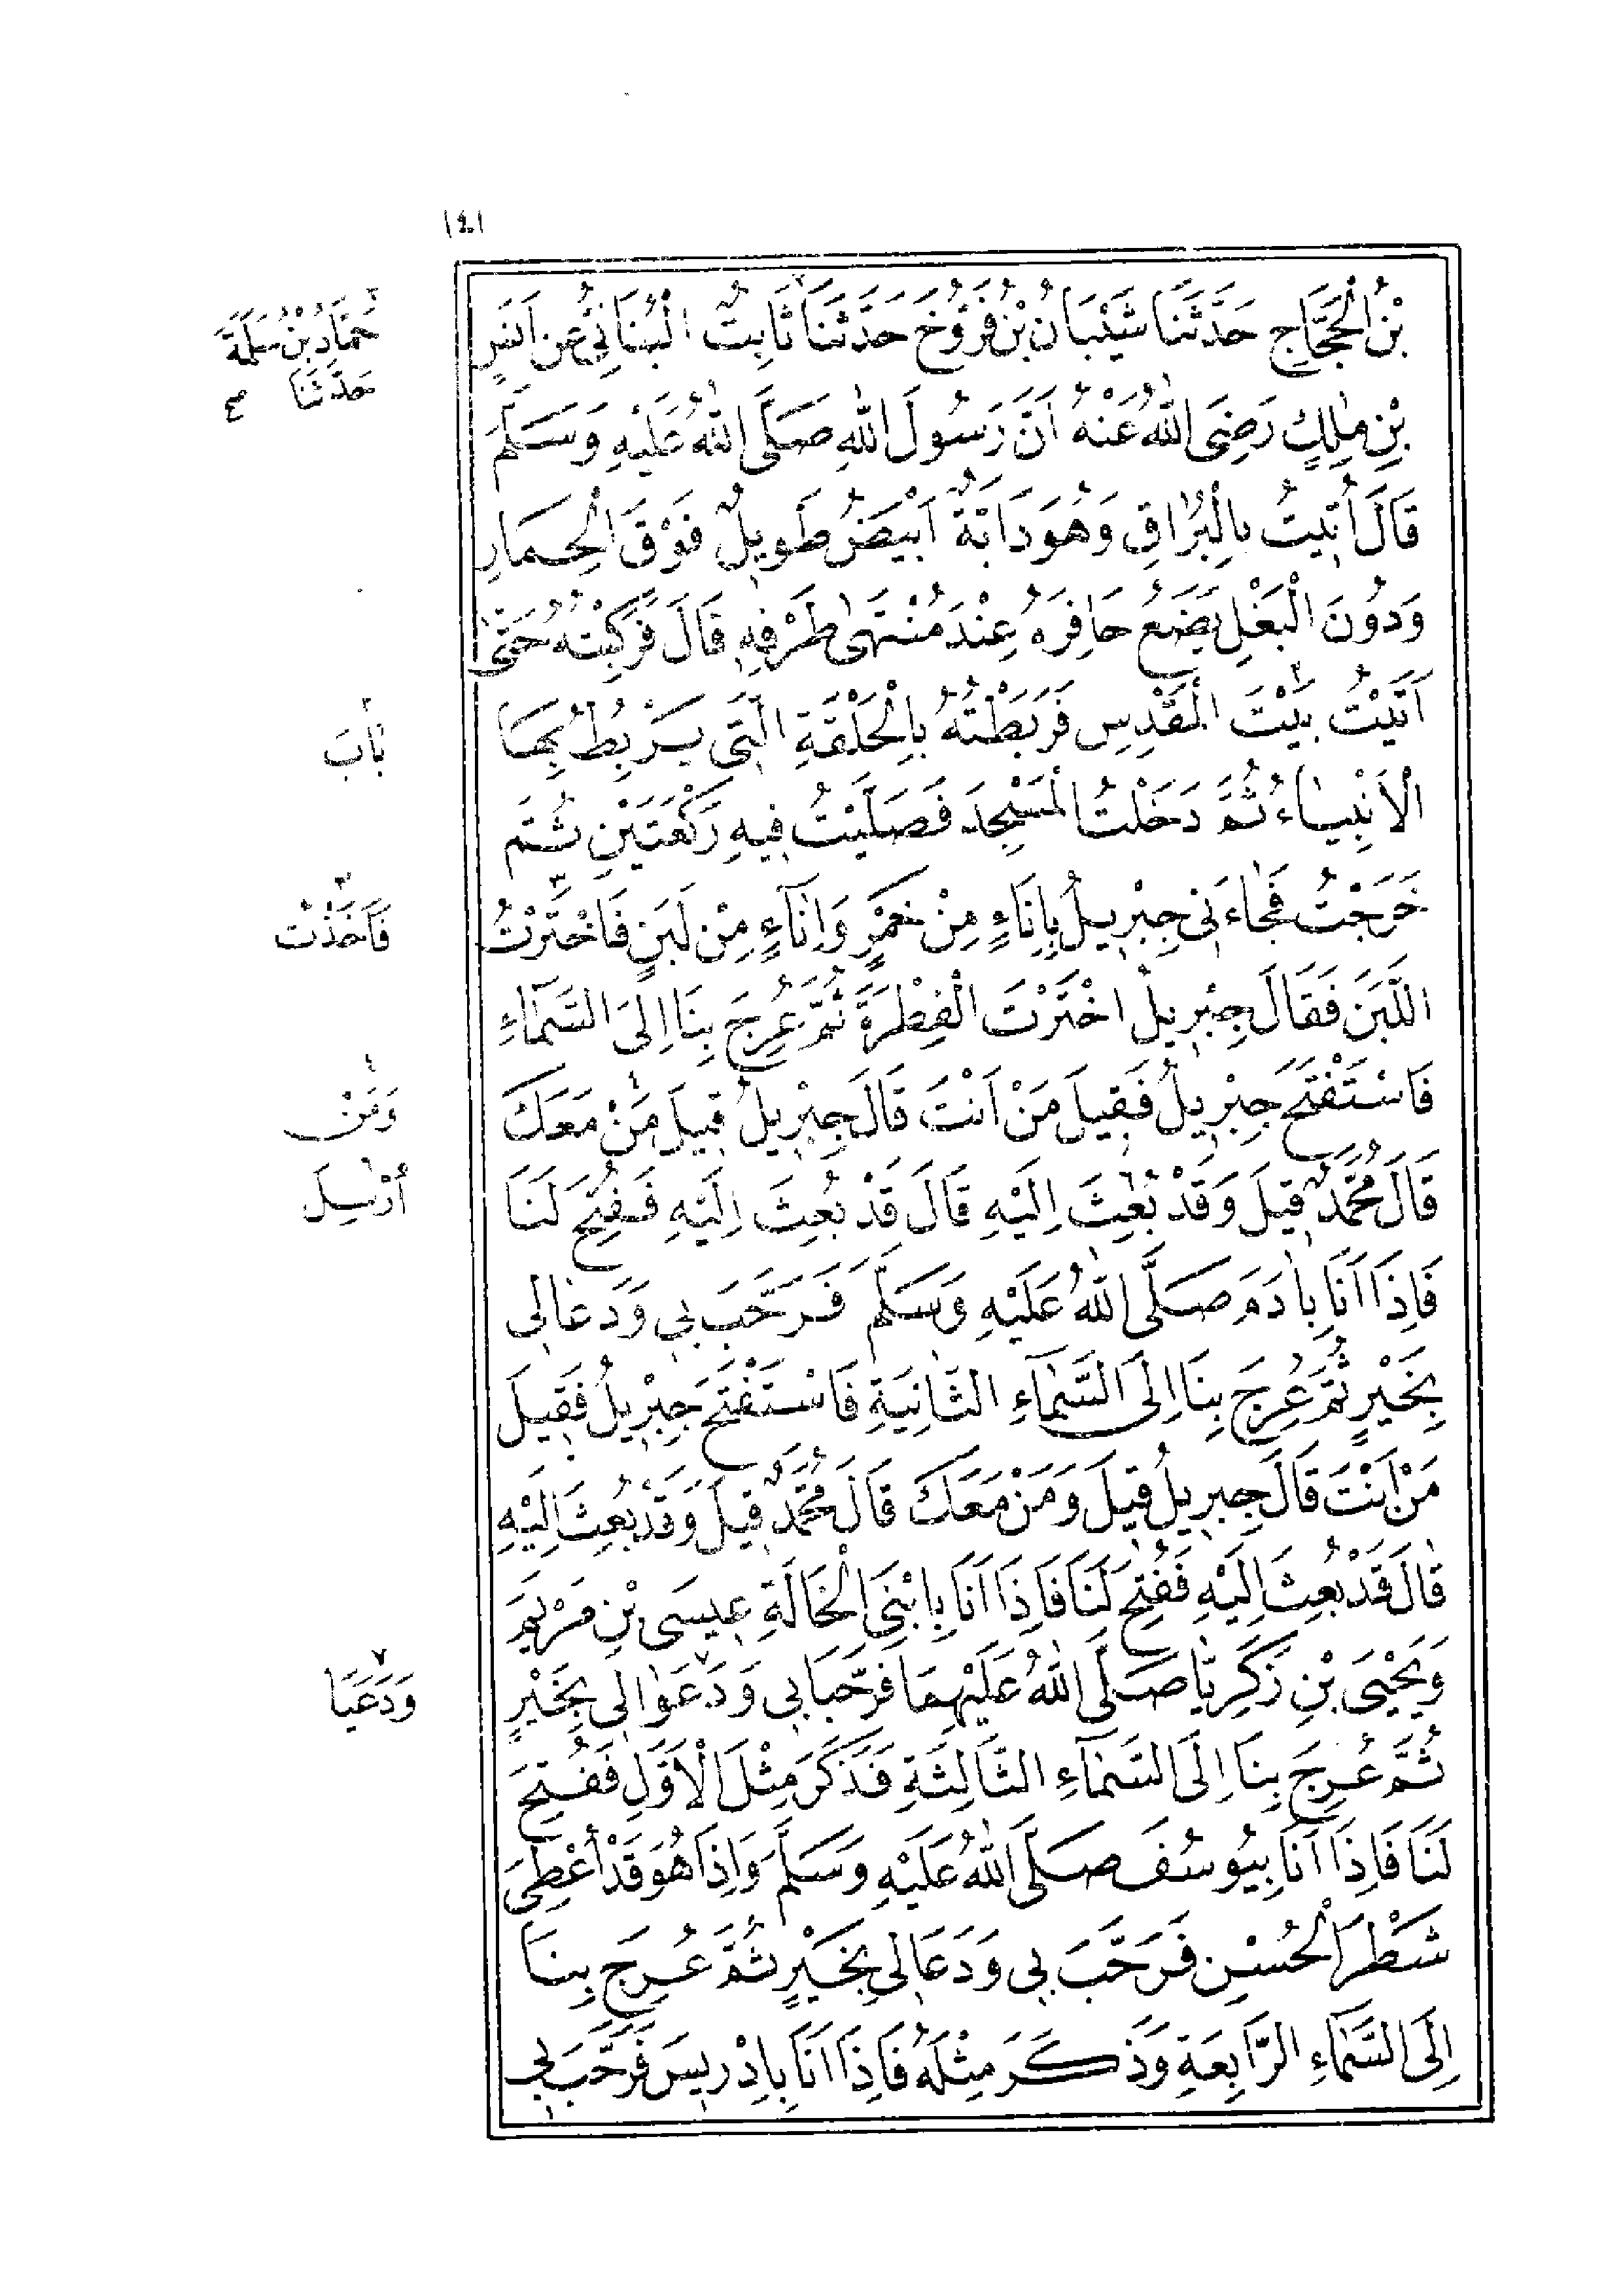 بْنُ الْحَجَّاجِ حَدَّثَنَا شَيْبَانُ بْنُ فَرُّوخَ حَدَّثَنَا ثَابِتٌ الْبُنَانِيُّ عَنْ اَنَسِ
بْنِ مٰلِكٍ رَضِىَ اللّٰهُ عَنْهُ اَنَّ رَسُولَ اللّٰهِ صَلَّى اللّٰهُ عَلَيْهِ وَسَلَّمَ
قَالَ اُتِيتُ بِالْبُرَاقِ وَهُوَ دَابَّةٌ اَبْيَضُ طَوِيلٌ فَوْقَ الْحِمَارِ
وَدُونَ الْبَغْلِ يَضَعُ حَافِرَهُ عِنْدَ مُنْتَهٰى طَرْفِهِ قَالَ فَرَكِبْتُهُ حَتّٰى
اَتَيْتُ بَيْتَ الْمَقْدِسِ فَرَبَطْتُهُ بِالْحَلْقَةِ الَّتِى يَرْبِطُ بِهَا
الْاَنْبِيَاءُ ثُمَّ دَخَلْتُ الْمَسْجِدَ فَصَلَّيْتُ فِيهِ رَكْعَتَيْنِ ثُمَّ
خَرَجْتُ فَجَاءَنِى جِبْرِيلُ بِاِنَاءٍ مِنْ خَمْرٍ وَاِنَاءٍ مِنْ لَبَنٍ فَاخْتَرْتُ
اللَّبَنَ فَقَالَ جِبْرِيلُ اخْتَرْتَ الْفِطْرَةَ ثُمَّ عُرِجَ بِنَا اِلَى السَّمَآءِ
فَاسْتَفْتَحَ جِبْرِيلُ فَقِيلَ مَنْ اَنْتَ قَالَ جِبْرِيلُ قِيلَ مَنْ مَعَكَ
قَالَ مُحَمَّدٌ قِيلَ وَقَدْ بُعِثَ اِلَيْهِ قَالَ قَدْ بُعِثَ اِلَيْهِ فَفُتِحَ لَنَا
فَاِذَا اَنَا بِاٰدَمَ صَلَّى اللّٰهُ عَلَيْهِ وَسَلَّمَ فَرَحَّبَ بِى وَدَعَا لِى
بِخَيْرٍ ثُمَّ عُرِجَ بِنَا اِلَى السَّمَآءِ الثَّانِيَةِ فَاسْتَفْتَحَ جِبْرِيلُ فَقِيلَ
مَنْ اَنْتَ قَالَ جِبْرِيلُ قِيلَ وَمَنْ مَعَكَ قَالَ مُحَمَّدٌ قِيلَ وَقَدْ بُعِثَ اِلَيْهِ
قَالَ قَدْ بُعِثَ اِلَيْهِ فَفُتِحَ لَنَا فَاِذَا اَنَا بِابْنَىِ الْخَالَةِ عِيسَى بْنِ مَرْيَمَ
وَيَحْيَى بْنِ زَكَرِيَّا صَلَّى اللّٰهُ عَلَيْهِمَا فَرَحَّبَا بِى وَدَعَوَا لِى بِخَيْرٍ
ثُمَّ عُرِجَ بِنَا اِلَى السَّمَآءِ الثَّالِثَةِ فَذَكَرَ مِثْلَ الْاَوَّلِ فَفُتِحَ
لَنَا فَاِذَا اَنَا بِيُوسُفَ صَلَّى اللّٰهُ عَلَيْهِ وَسَلَّمَ وَاِذَا هُوَ قَدْ اُعْطِىَ
شَطْرَ الْحُسْنِ فَرَحَّبَ بِى وَدَعَا لِى بِخَيْرٍ ثُمَّ عُرِجَ بِنَا
اِلَى السَّمَآءِ الرَّابِعَةِ وَذَكَرَ مِثْلَهُ فَاِذَا اَنَا بِاِدْرِيسَ فَرَحَّبَ بِى
حَمَّادُ بْنُ سَلَمَةَ
حَدَّثَنَا
بَابَ
فَاَخَذْتُ
وَمَنْ
اُرْسِلَ
وَدَعَيَا